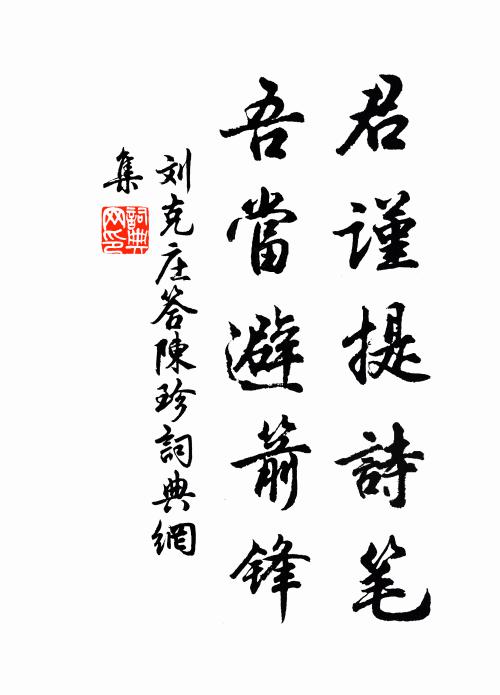 君谨提詩笔
吾當避箭锋
刘克庄答陳珍詞典網
集
詞典网印